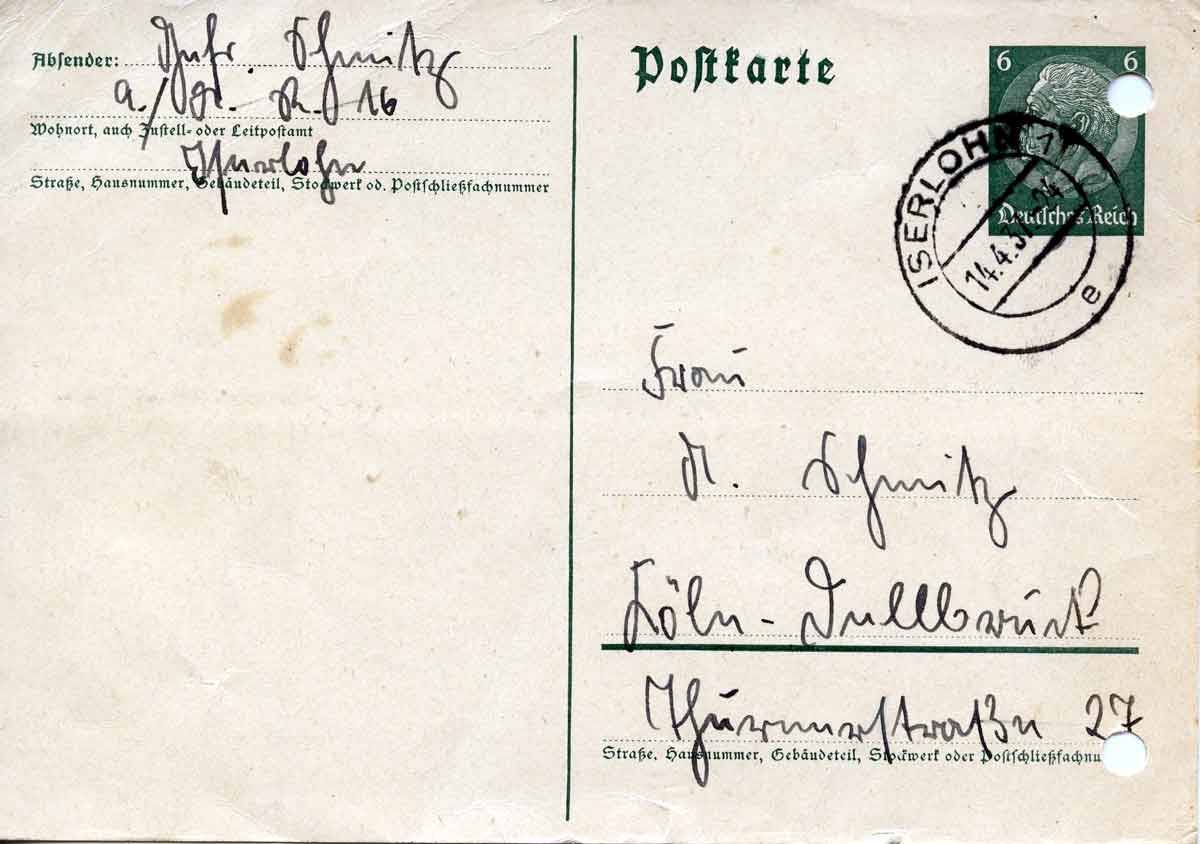 Postkarte
Absender: Schmitz
16
Wohnort, auch Zustell- oder Leitpostamt
Iserlohn
Straße, Hausnummer, Gebäudeteil, Stockwerk od. Postschließfachnummer
6 6
Deutsches Reich
ISERLOHN 1
14.4.37
e
Frau
Schmitz
Köln-Dellbrück
Thurnerstraße 27
Straße, Hausnummer, Gebäudeteil, Stockwerk oder Postschließfachnu